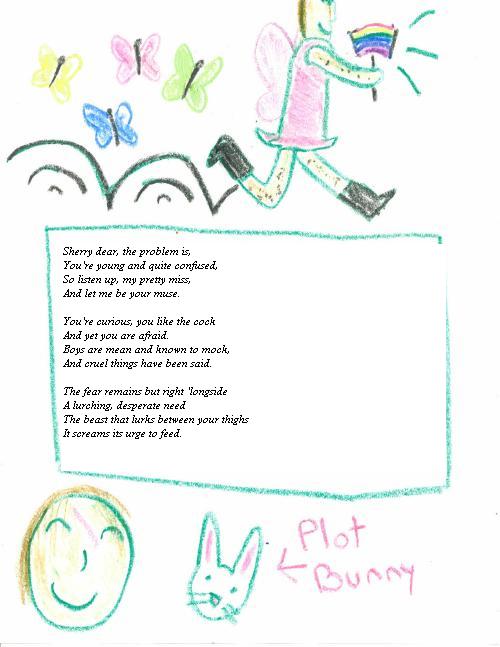 Sherry dear, the problem is,
You're young and quite confused,
So listen up, my pretty miss,
And let me be your muse.
You're curious, you like the cock
And yet you are afraid.
Boys are mean and known to mock,
And cruel things have been said.
The fear remains but right 'longside
A lurching, desperate need
The beast that lurks between your thighs
It screams its urge to feed.
Plot
Bunny